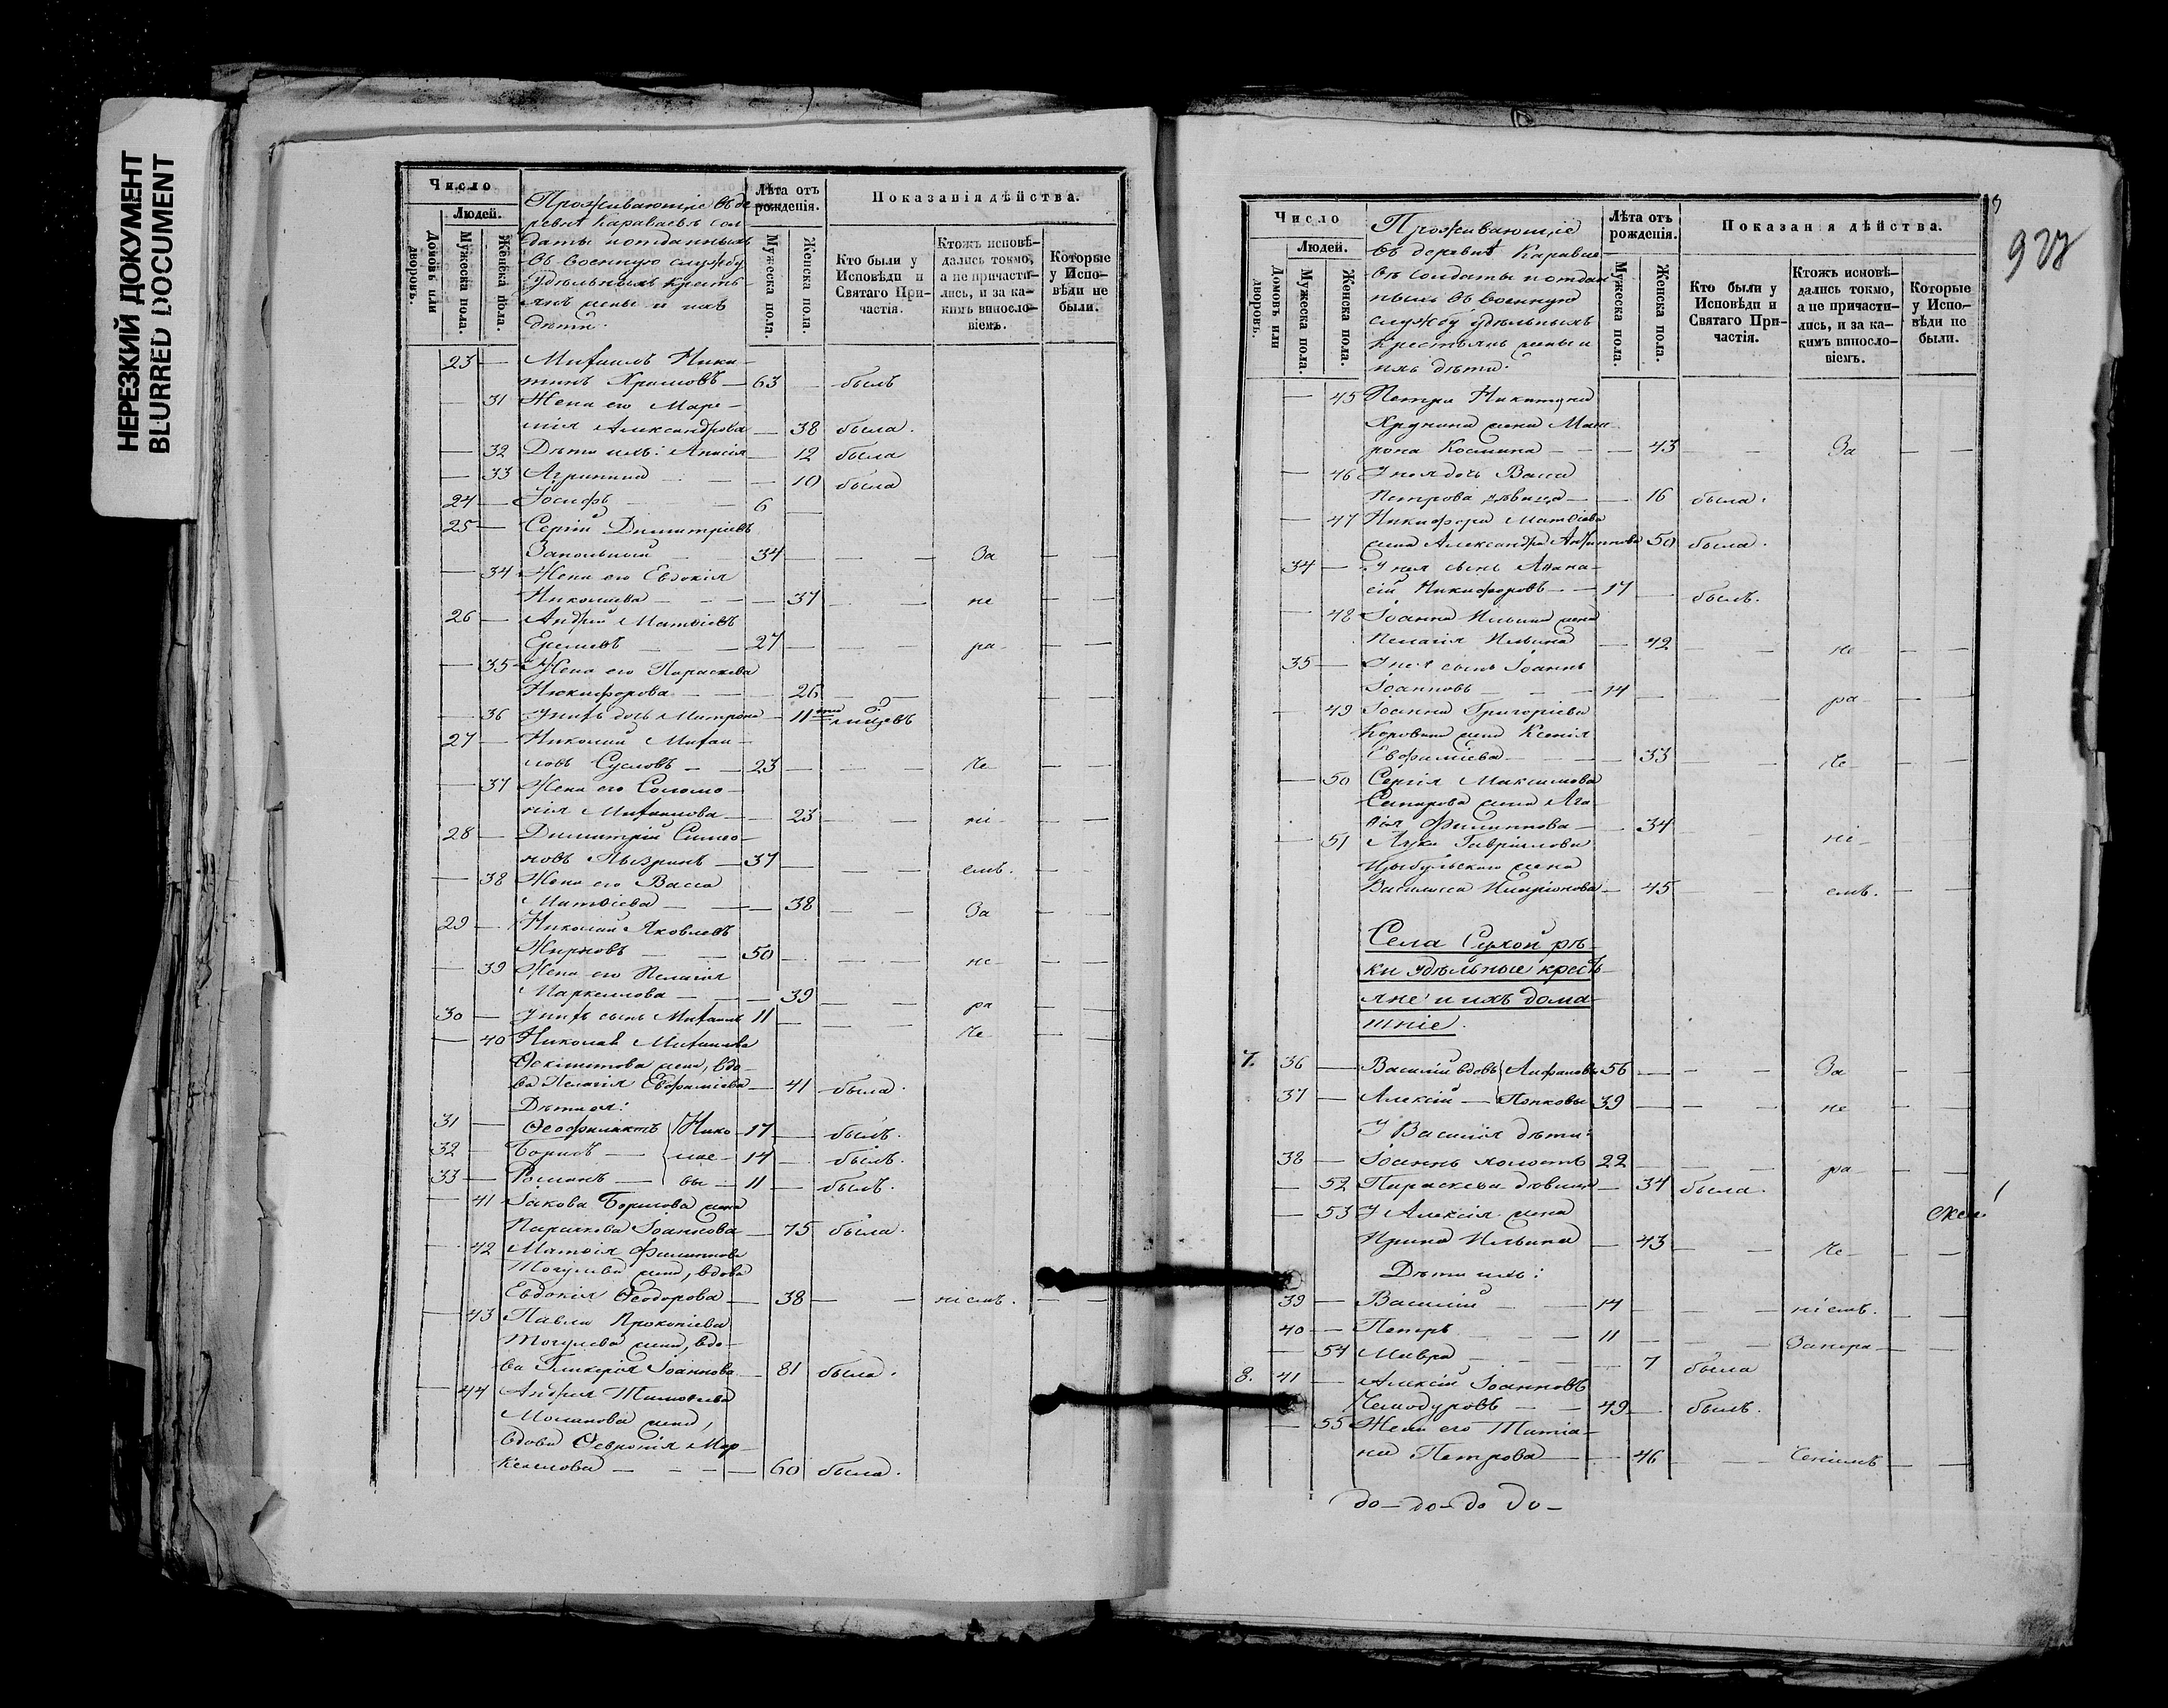 НЕРЕЗКИЙ ДОКУМЕНТ
BLURRED DOCUMENT
Число
Людей.
Домовъ или дворовъ.
Мужеска пола.
Женска пола.
Проживающіе въ де
ревнѣ Караваевѣ сол
даты и отданныхъ
въ военную службу
удѣльныхъ кресть
янъ жены и ихъ
дѣти.
Лѣта отъ рожденія.
Мужеска пола.
Женска пола.
Показанія дѣйства.
Кто были у Исповѣди и Святаго Причастія.
Ктожъ исповѣдались токмо, а не причастились, и за какимъ винословіемъ.
Которые у Исповѣди не были.
23 — Михаилъ Ники-
тинъ Храмовъ — 63 — былъ
— 31 Жена его Мар-
Александрова — 38 была.
— 32 Дѣти ихъ: Анисія — 12 была
— 33 Агрипина — 10 была
24 — Іосифъ — 6
25 — Сергій Димитріевъ
34 — За — —
— 34 Жена его Евдокія
Николаева — 37 — не — —
26 — Андрей Матѳіевъ
27 — ра — —
— 35 Жена его Параскева
Никифорова — 26
— 36 У нихъ дочь Матрона — 11
27 — Николай Михаи-
ловъ Сусловъ — 23 — че — —
— 37 Жена его Соломо-
нія Михаилова — 23 — ні — —
28 — Димитрій Симео-
новъ — 37 — емъ. — —
— 38 Жена его Васса
Матѳіева — 38 — За — —
29 — Николай Яковлевъ
Жирновъ — 50 — не — —
— 39 Жена его Пелагія
Маркеллова — 39 — ра
30 — У нихъ сынъ Михаилъ 11 — че —
— 40 Николая Михаилова
жена, вдо-
ва Пелагія Евфимиева — 41 была.
Дѣти ея:
31 — Ѳеофилактъ Нико — 17 — былъ.
32 — Борисъ — лае — 14 — былъ.
33 — Романъ — вы — 11 — былъ.
— 41 Іакова Борисова жена
Параскева Іоаннова — 75 была.
— 42 Матѳія Филиппова
жена, вдова
Евдокія Ѳеодорова — 38 — ніемъ. — —
— 43 Павла Прокопіева
жена, вдо-
ва Гликерія Іоаннова — 81 была.
— 44 Андрея Тимоѳеева
жена,
вдова Ѳевронія Мар-
келлова — 60 была.
928
Число
Людей.
Домовъ или дворовъ.
Мужеска пола.
Женска пола.
Проживающіе
въ деревнѣ Каравае
вѣ солдаты и отдан
ныхъ въ военную
службу удѣльныхъ
крестьянъ жены и
ихъ дѣти.
Лѣта отъ рожденія.
Мужеска пола.
Женска пола.
Показанія дѣйства.
Кто были у Исповѣди и Святаго Причастія.
Ктожъ исповѣдались токмо, а не причастились, и за какимъ винословіемъ.
Которые у Исповѣди не были.
— 45 Петра Никитина
жена Мат
рона Космина — 43 — За — —
— 46 У нея дочь Васса
Петрова дѣвица — 16 была.
— 47 Никифора Матѳіева
жена Александра 50 была.
34 — У нея сынъ Аѳана-
сій Никифоровъ — 17 — былъ.
— 48 Іоанна Ильина жена
Пелагія Ильина — 42 — не — —
35 — У нея сынъ Іоаннъ
Іоанновъ — 14 — ра — —
— 49 Іоанна Григоріева
жена Ксенія
Евфиміева — 33 — че — —
— 50 Сергія Максимова
жена Ага-
Филиппова — 34 — ні — —
— 51 Луки Гавріилова
Цыбульскаго жена
Василисса Иларіонова — 45 — емъ. — —
Села Сухой рѣ-
ки удѣльные кресть-
яне и ихъ дома-
шніе.
7. 36 — Василій вдовъ 56 — За — —
37 — Алексій — Попковы 39 — не — —
У Василія дѣти:
38 — Іоаннъ холостъ 22 — ра — —
— 52 Параскева дѣвица — 34 была.
— 53 У Алексія жена
Ирина Ильина — 43 — че — —
Дѣти ихъ:
39 — Василій — 14 — ніемъ. — —
40 — Петръ — 11 — Занера — —
— 54 Мавра — 7 была
8. 41 — Алексій Іоанновъ
Чемодуровъ — 49 — былъ.
— 55 Жена его Татіа-
на Петрова — 46 — ченіемъ — —
до — до — до до —